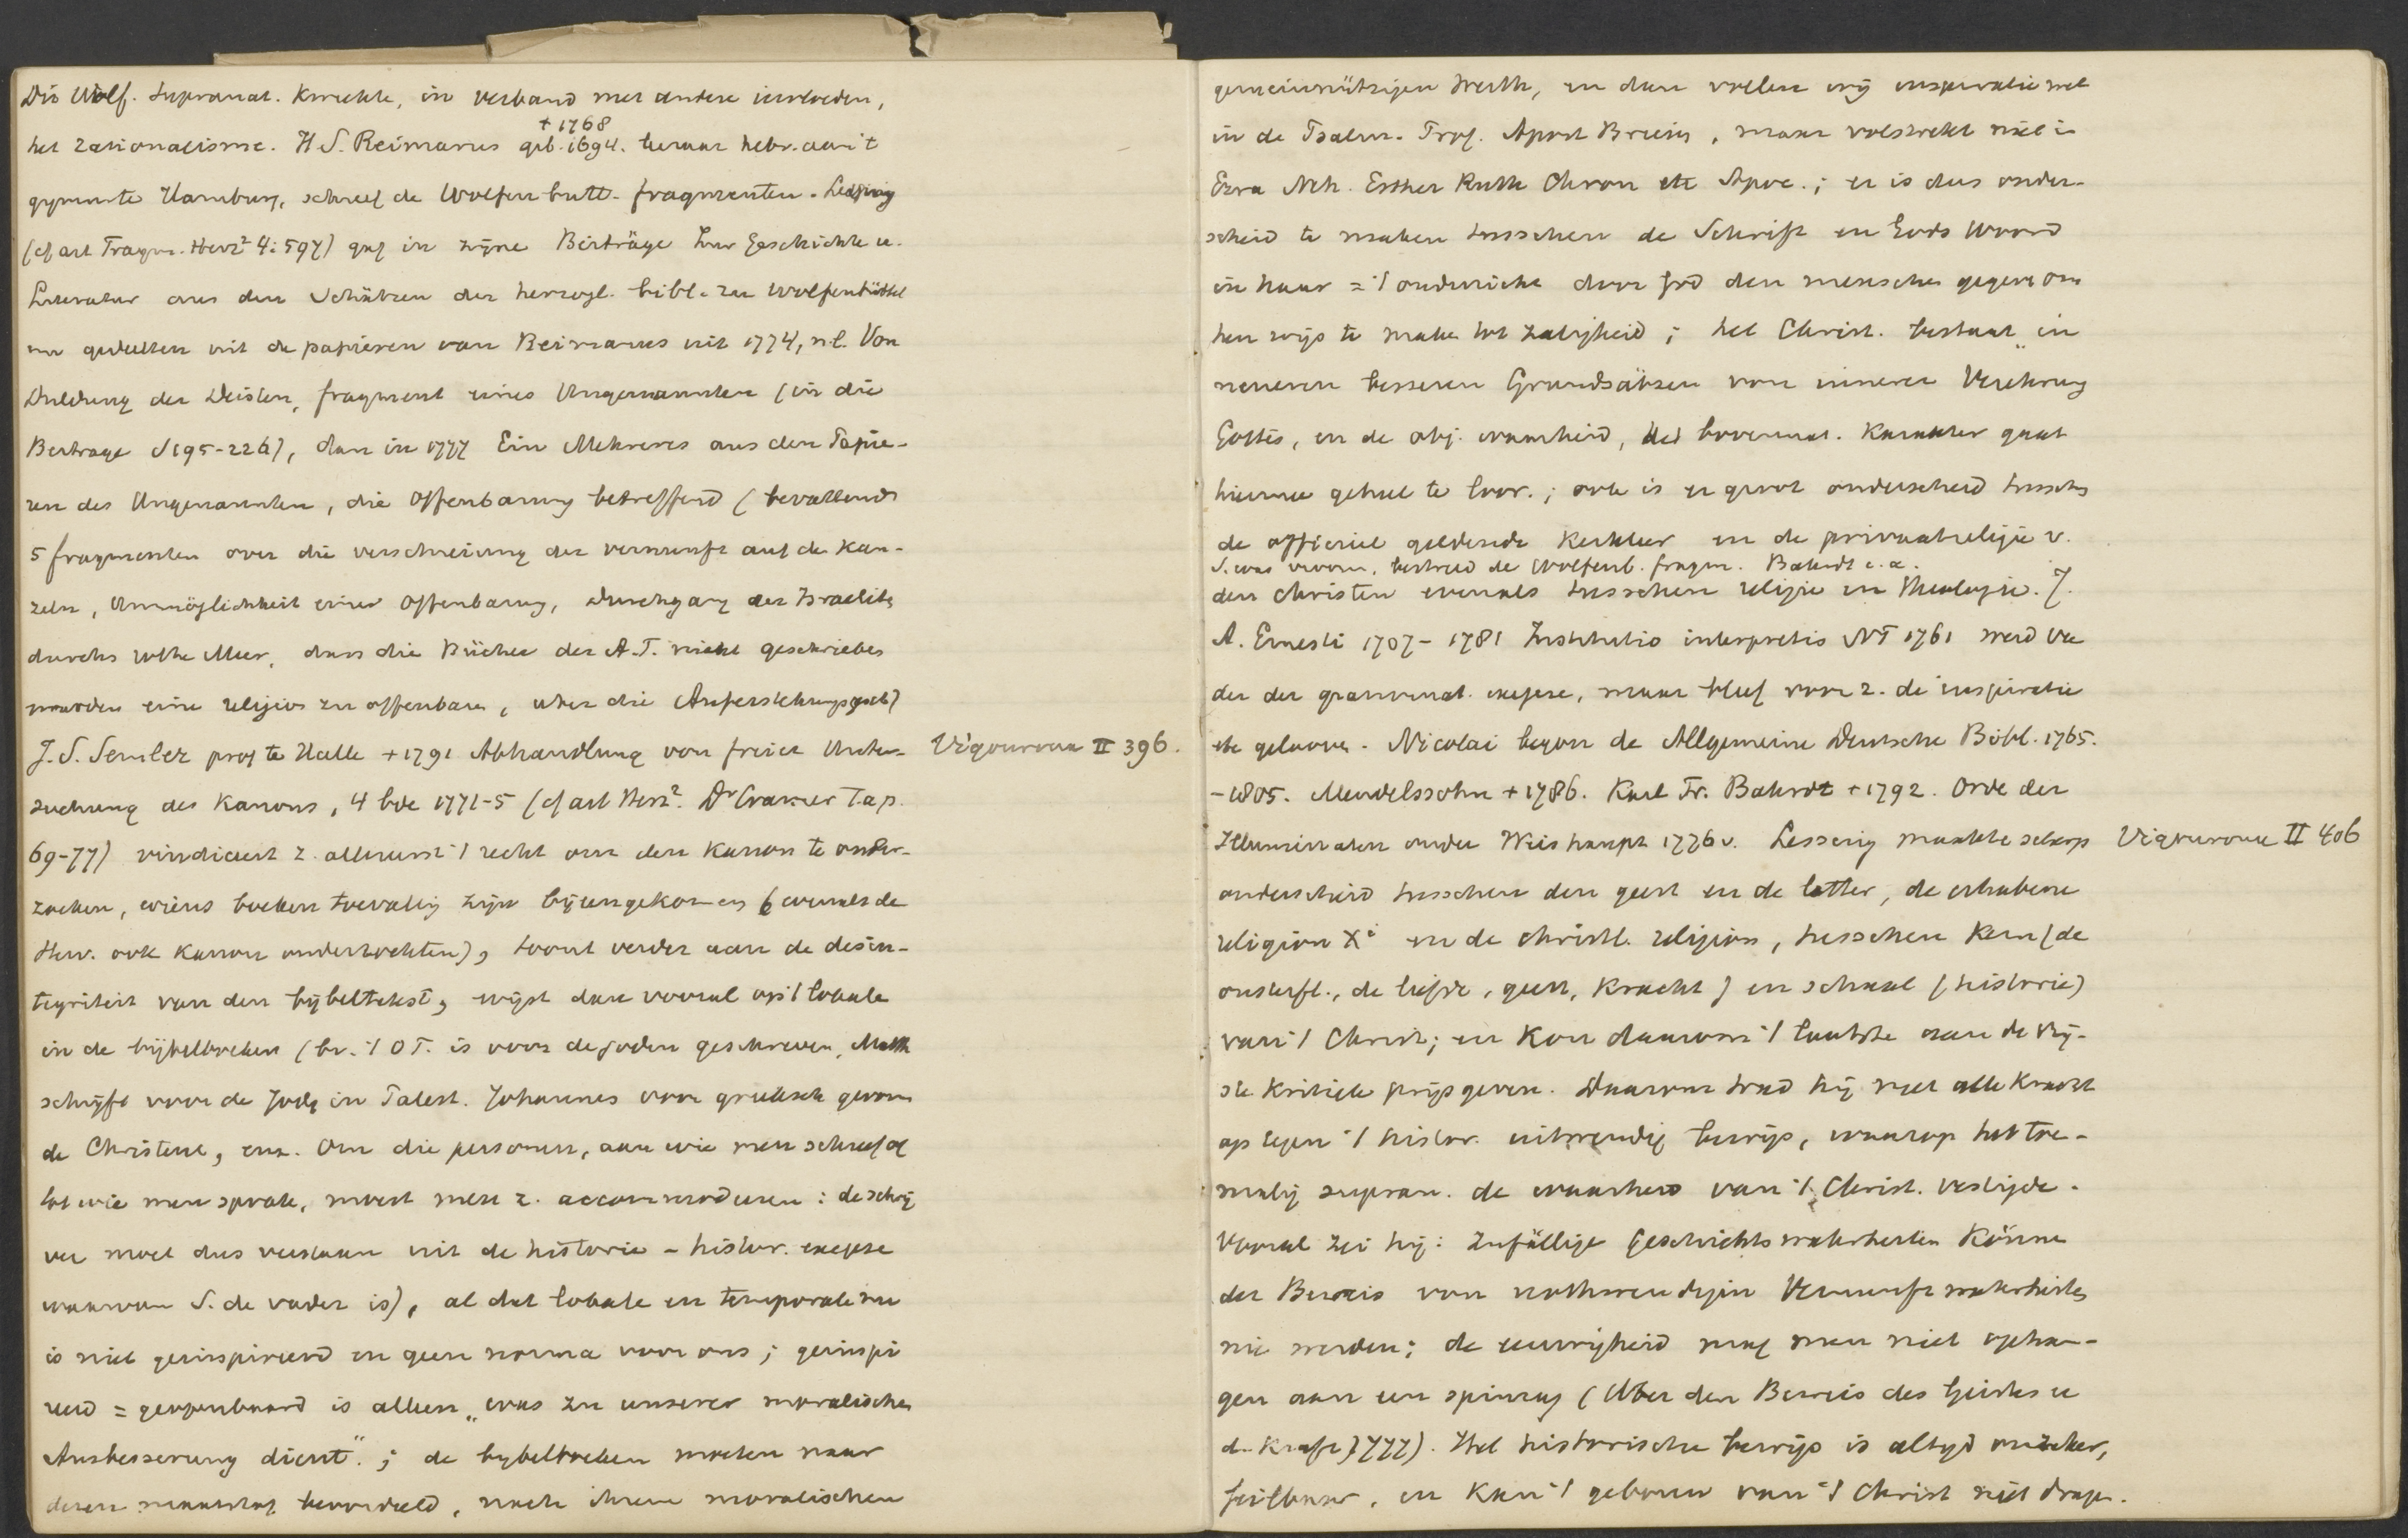 Dit Wolf. supranat. kweekte, in verband met andere invloeden,
+ 1768
het rationalisme. H. S. Reimarus geb. 1694. leraar hebr. aan 't
gymn. te Hamburg, schreef de Wolfenbutt. fragmenten. Lessing
(cf art Fragm. Herz² 4:597) gaf in zijne Beiträge zur Geschichte u.
Literatur aus den Schätzen der herzogl. bibl. zu Wolfenbüttel
gedeelten uit de papieren van Reimarus uit 1774, n.l. Von
Duldung der Deisten, fragment eines Ungenannten (in die
Beitrage S 195-226), dan in 1777 Ein Mehreres aus den Papie-
ren des Ungenannten, die Offenbarung betreffend (bevattende
5 fragmenten over die verschreiung der vernunft auf de Kan-
zeln, Unmöglichkeit einer Offenbarung, Durchgang der Israelite
durchs rothe Meer, dass die Bücher des A.T. nicht geschrieben
worden eine religion zu offenbaren, über die Auferstehungsgesch)
J. S. Semler prof te Halle + 1791 Abhandlung von freier Unter- Vigouroux II 396.
suchung des Kanons, 4 bde 1771-5 (cf art Herz². Dr Cramer T.a.p.
69-77) vindiceert z. allereerst 't recht om den kanon te onder-
zoeken, wiens boeken toevallig zijn bijeengekomen (evenals de
Herv. ook kanon onderzochten), toont verder aan de desin-
tegriteit van den bijbeltekst, wijst dan vooral op 't lokale
in de bijbelboeken (bv. 't O.T. is voor de joden geschreven, Matth
schrijft voor de Jode in Palest. Johannes voor grieksch gevorm
de Christene, enz. Om die personen, aan wie men schreef of
tot wie men sprak, moest men z. accommoderen: de schrij
ver moet dus verstaan uit de historie - histor. exegese
waarvan S. de vader is), al dat lokale en temporale nu
is niet geinspireerd en geen norma voor ons; geinspi
reerd = geopenbaard is alleen „was zu unserer moralischen
Ausbesserung dient"; de bybelboeken moeten naar
dezen maatstaf beoordeeld, nach ihrem moralischen
gemeinnützigen Werth, en dan vallen wij inspiratie wel
in de Psalm. Prof. Apost Brieven, maar volstrekt niet in
Ezra Neh. Esther Ruth Chron etc Apoc.; er is dus onder-
scheid te maken tusschen de Schrift en Gods Woord
in haar = 't onderricht door God den menschen gegeven om
hen wijs te maken tot zaligheid; het Christ. bestaat „in
neueren besseren Grundsätzen von innerer Verehrung
Gottes, en de obj. waarheid, het bovennat. karakter gaat
hiermee geheel te loor.; ook is er groot onderscheid tusschen
de officieel geldende kerkleer en de privaatreligie v.
S. was vroom, bestreed de Wolfenb. fragm. Bahrdt e.a.
den christen evenals tusschen religie en theologie. J.
A. Ernesti 1707-1781 Institutio interpretis NT 1761 werd va
der der grammat. exegese, maar bleef voor z. de inspiratie
etc gelooven. Nicolai begon de Allgemeine Deutsche Bibl. 1765.
-1805. Mendelssohn + 1786. Karl Fr. Bahrdt + 1792. Orde der
Illuminaten onder Weishaupt 1776 v. Lessing maakte scherp Vigouroux II 406
onderscheid tusschen den geest en de letter, de erhabene
religion Xi en de christl. religion, tusschen kern (de
onsterfl., de liefde, geest, kracht) en schaal (historie)
van 't Christ; en kon daarom 't laatste aan de vrij-
ste kritiek prijsgeven. Daarom trad hij met alle kracht
op tegen 't histor. uitwendig bewijs, waarop het toe-
malig supran. de waarheid van 't Christ. vestigde.
Vooral zei hij: Zufällige Geschichtswahrheiten könne
der Beweis von nothwendigen Vernunftwahrheiten
nie werden; de eeuwigheid mag men niet ophan-
gen aan een spinrag (Uber den Beweis des Geistes u
d. Kraft 1777). Het historische bewijs is altyd onzeker,
feilbaar, en kan 't gebouw van 't Christ niet dragen.